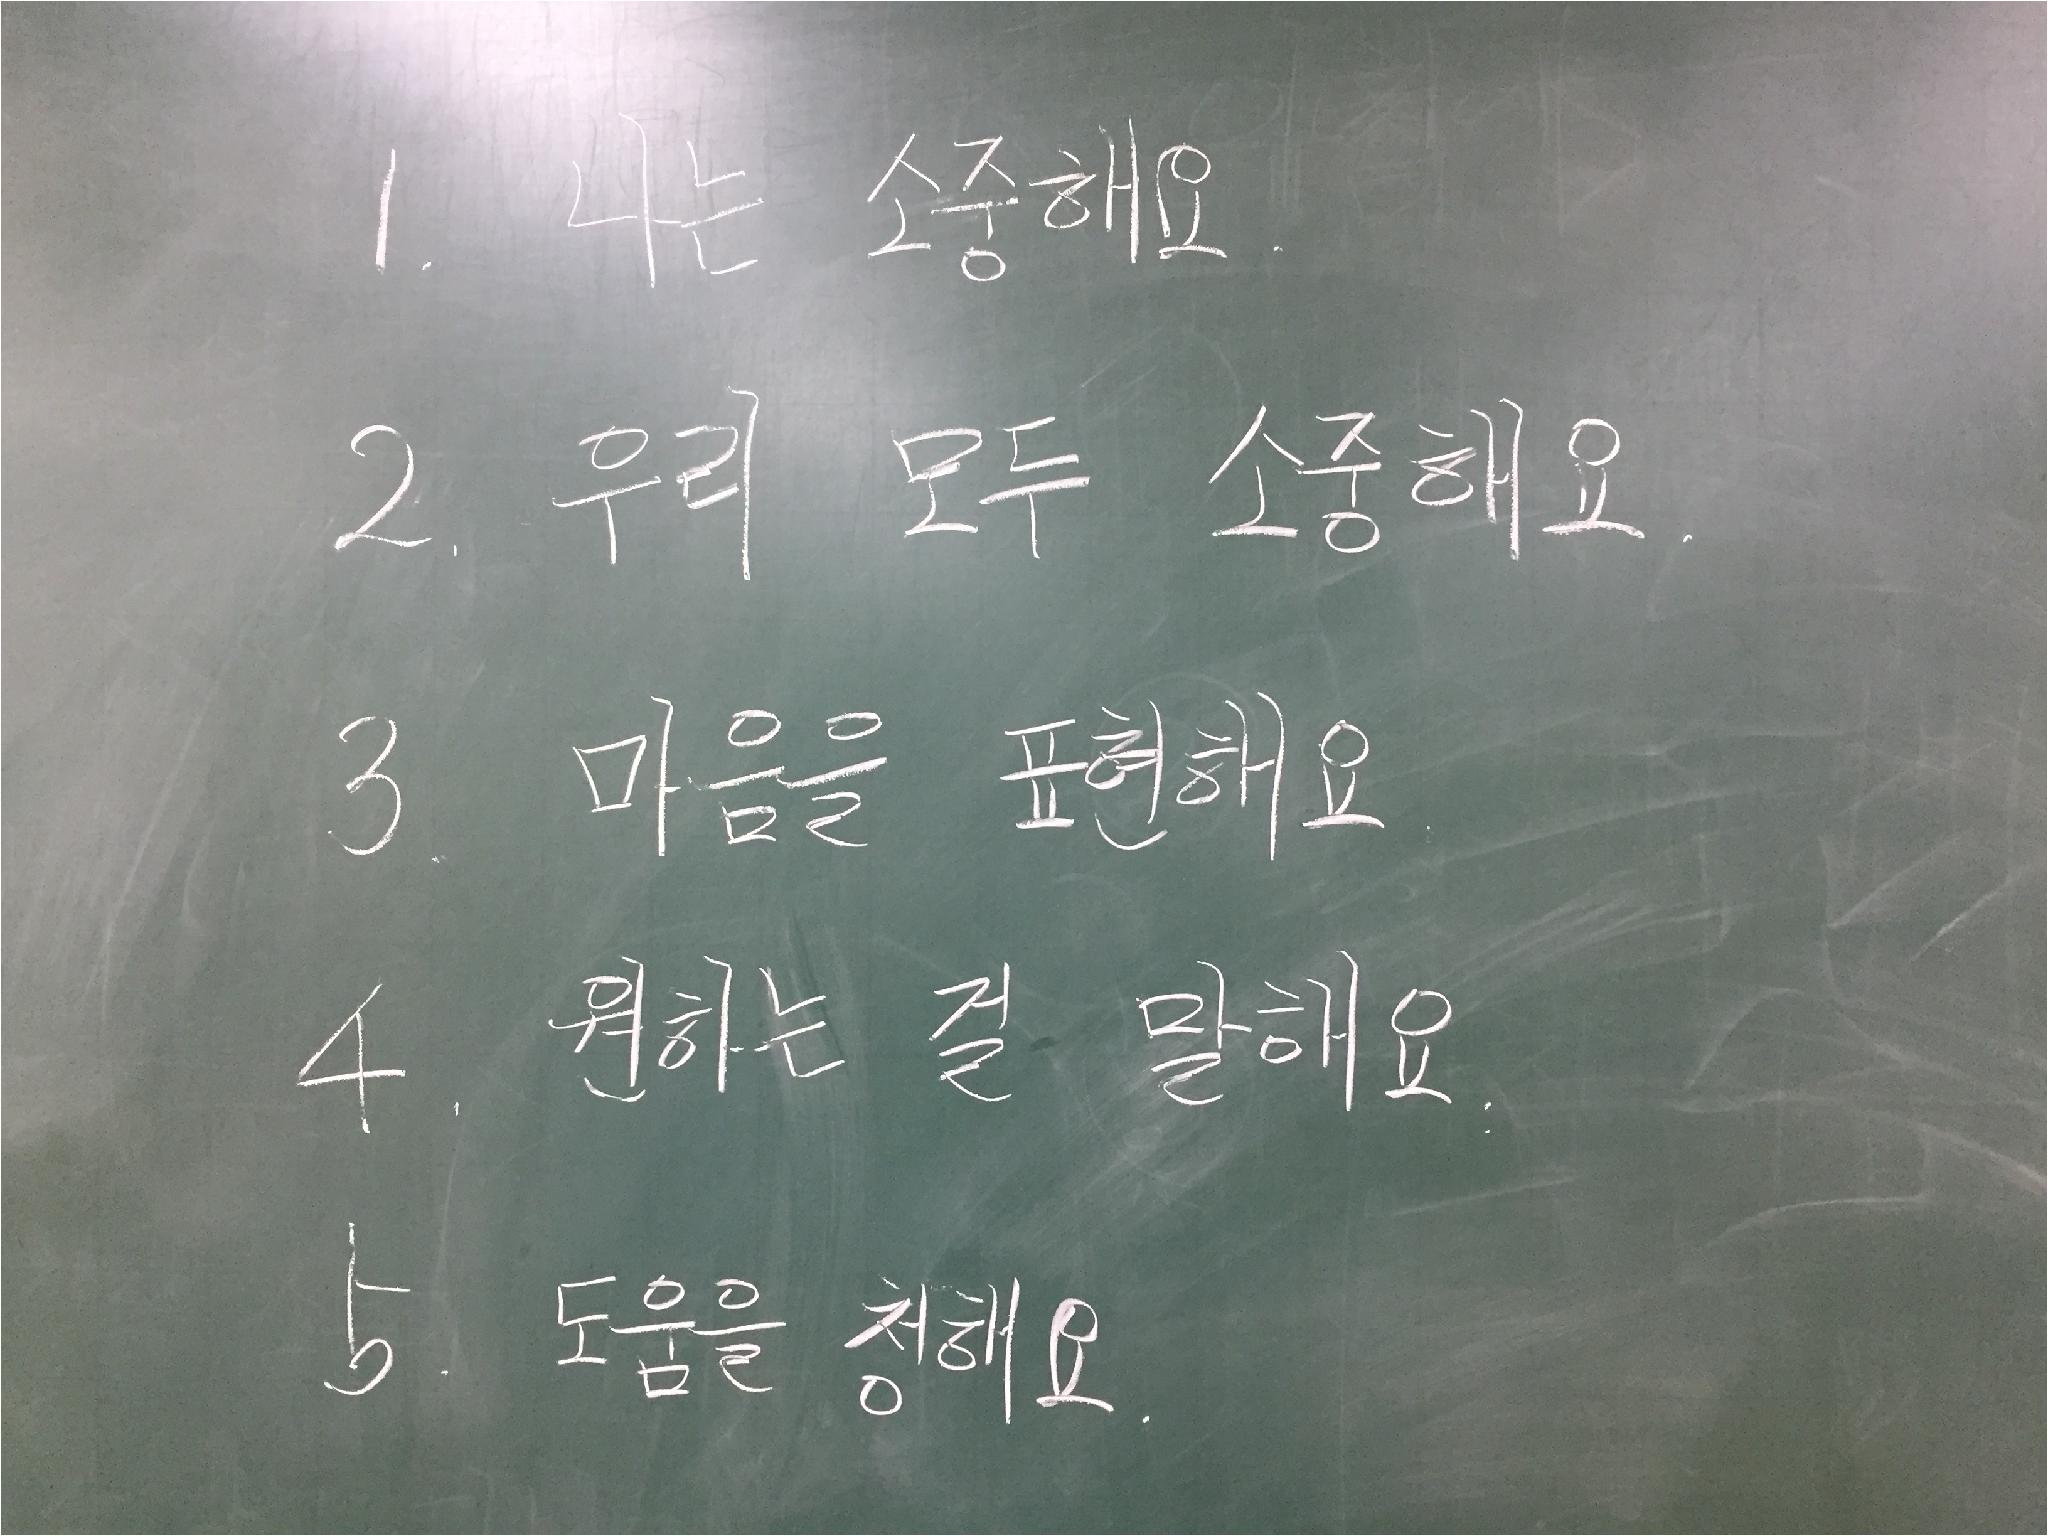 1. 나는 소중해요.
2. 우리 모두 소중해요.
3. 마음을 표현해요.
4. 원하는 걸 말해요.
5. 도움을 청해요.